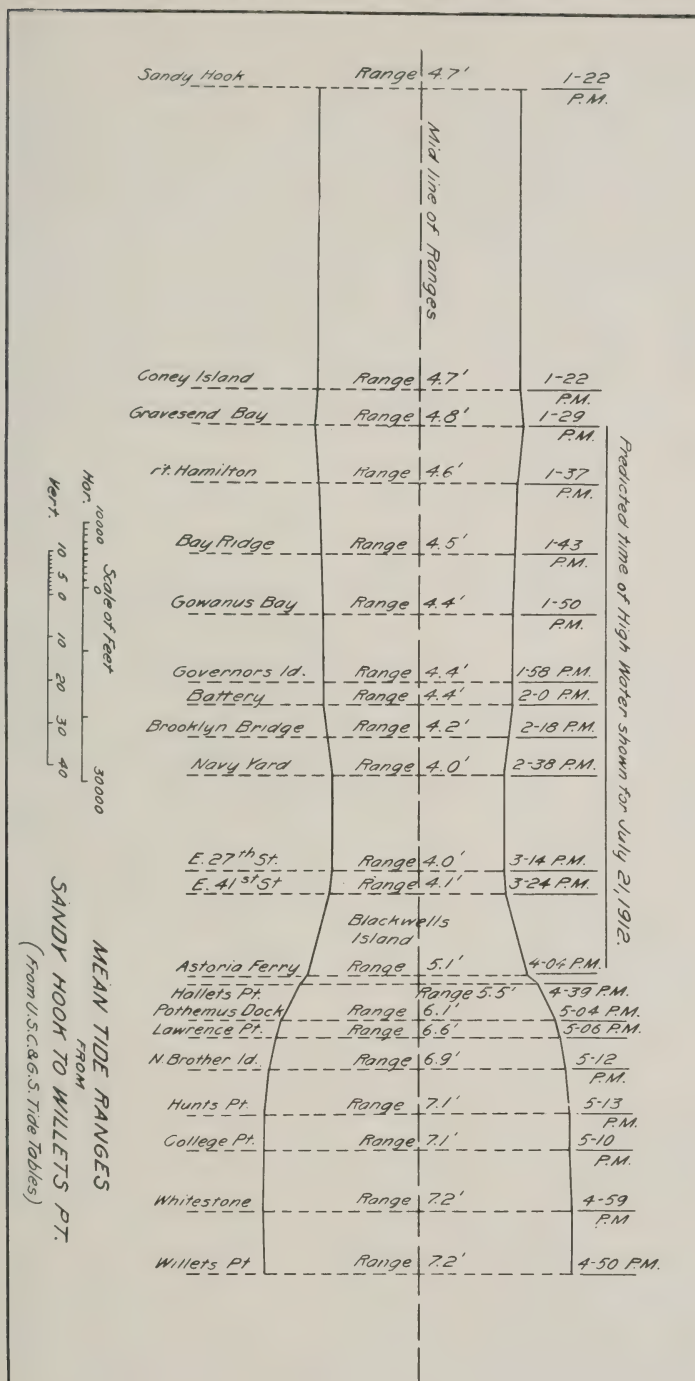 Sandy Hook Range 4.7' 1-22 P.M.
Mid line of Ranges
Coney Island Range 4.7' 1-22 P.M.
Gravesend Bay Range 4.8' 1-29 P.M.
Predicted time of High Water shown for July 21, 1912.
Ft. Hamilton Range 4.6' 1-37 P.M.
Bay Ridge Range 4.5' 1-43 P.M.
Gowanus Bay Range 4.4' 1-50 P.M.
Governors Id. Range 4.4' 1-58 P.M.
Battery Range 4.4' 2-0 P.M.
Brooklyn Bridge Range 4.2' 2-18 P.M.
Navy Yard Range 4.0' 2-38 P.M.
E. 27th St. Range 4.0' 3-14 P.M.
E. 41st St Range 4.1' 3-24 P.M.
Blackwells
Island
Astoria Ferry Range 5.1' 4-04 P.M.
Hallets Pt. Range 5.5' 4-39 P.M.
Pothemus Dock Range 6.1' 5-04 P.M.
Lawrence Pt. Range 6.6' 5-06 P.M.
N. Brother Id. Range 6.9' 5-12 P.M.
Hunts Pt. Range 7.1' 5-13 P.M.
College Pt. Range 7.1' 5-10 P.M.
Whitestone Range 7.2' 4-59 P.M
Willets Pt Range 7.2' 4-50 P.M.
Scale of Feet
Hor. 10000 0 30000
Vert. 10 5 0 10 20 30 40
MEAN TIDE RANGES
FROM
SANDY HOOK TO WILLETS PT.
(From U.S.C.&G.S. Tide Tables)